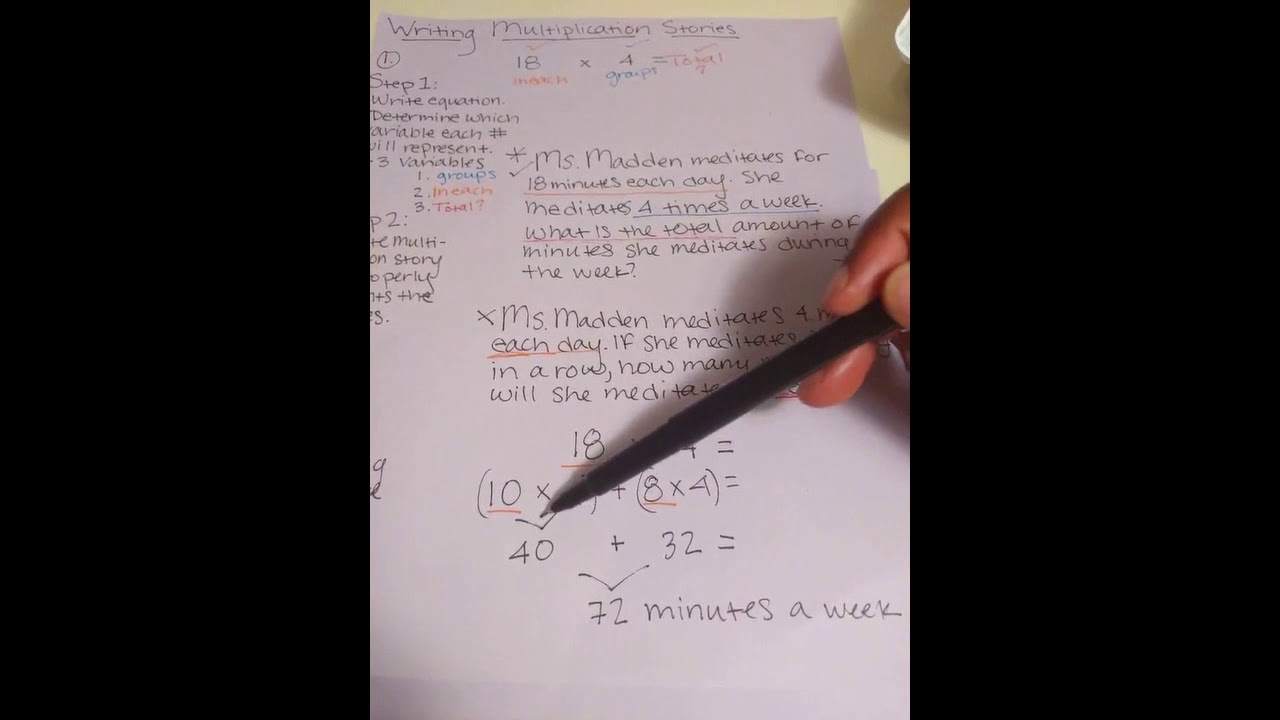 Writing Multiplication Stories
18 x 4 = Total
in each groups ?
1.
Step 1:
Write equation.
Determine which
variable each #
will represent.
3 variables
1. groups
2. In each
3. Total?
2:
multi-
story
the
* Ms. Madden meditates for
18 minutes each day. She
meditates 4 times a week.
What is the total amount of
minutes she meditates during
the week?
x Ms. Madden meditates 4
each day. If she meditates
in a row, how many
will she meditate
18 =
(10 x ) + (8 x 4) =
40 + 32 =
72 minutes a week